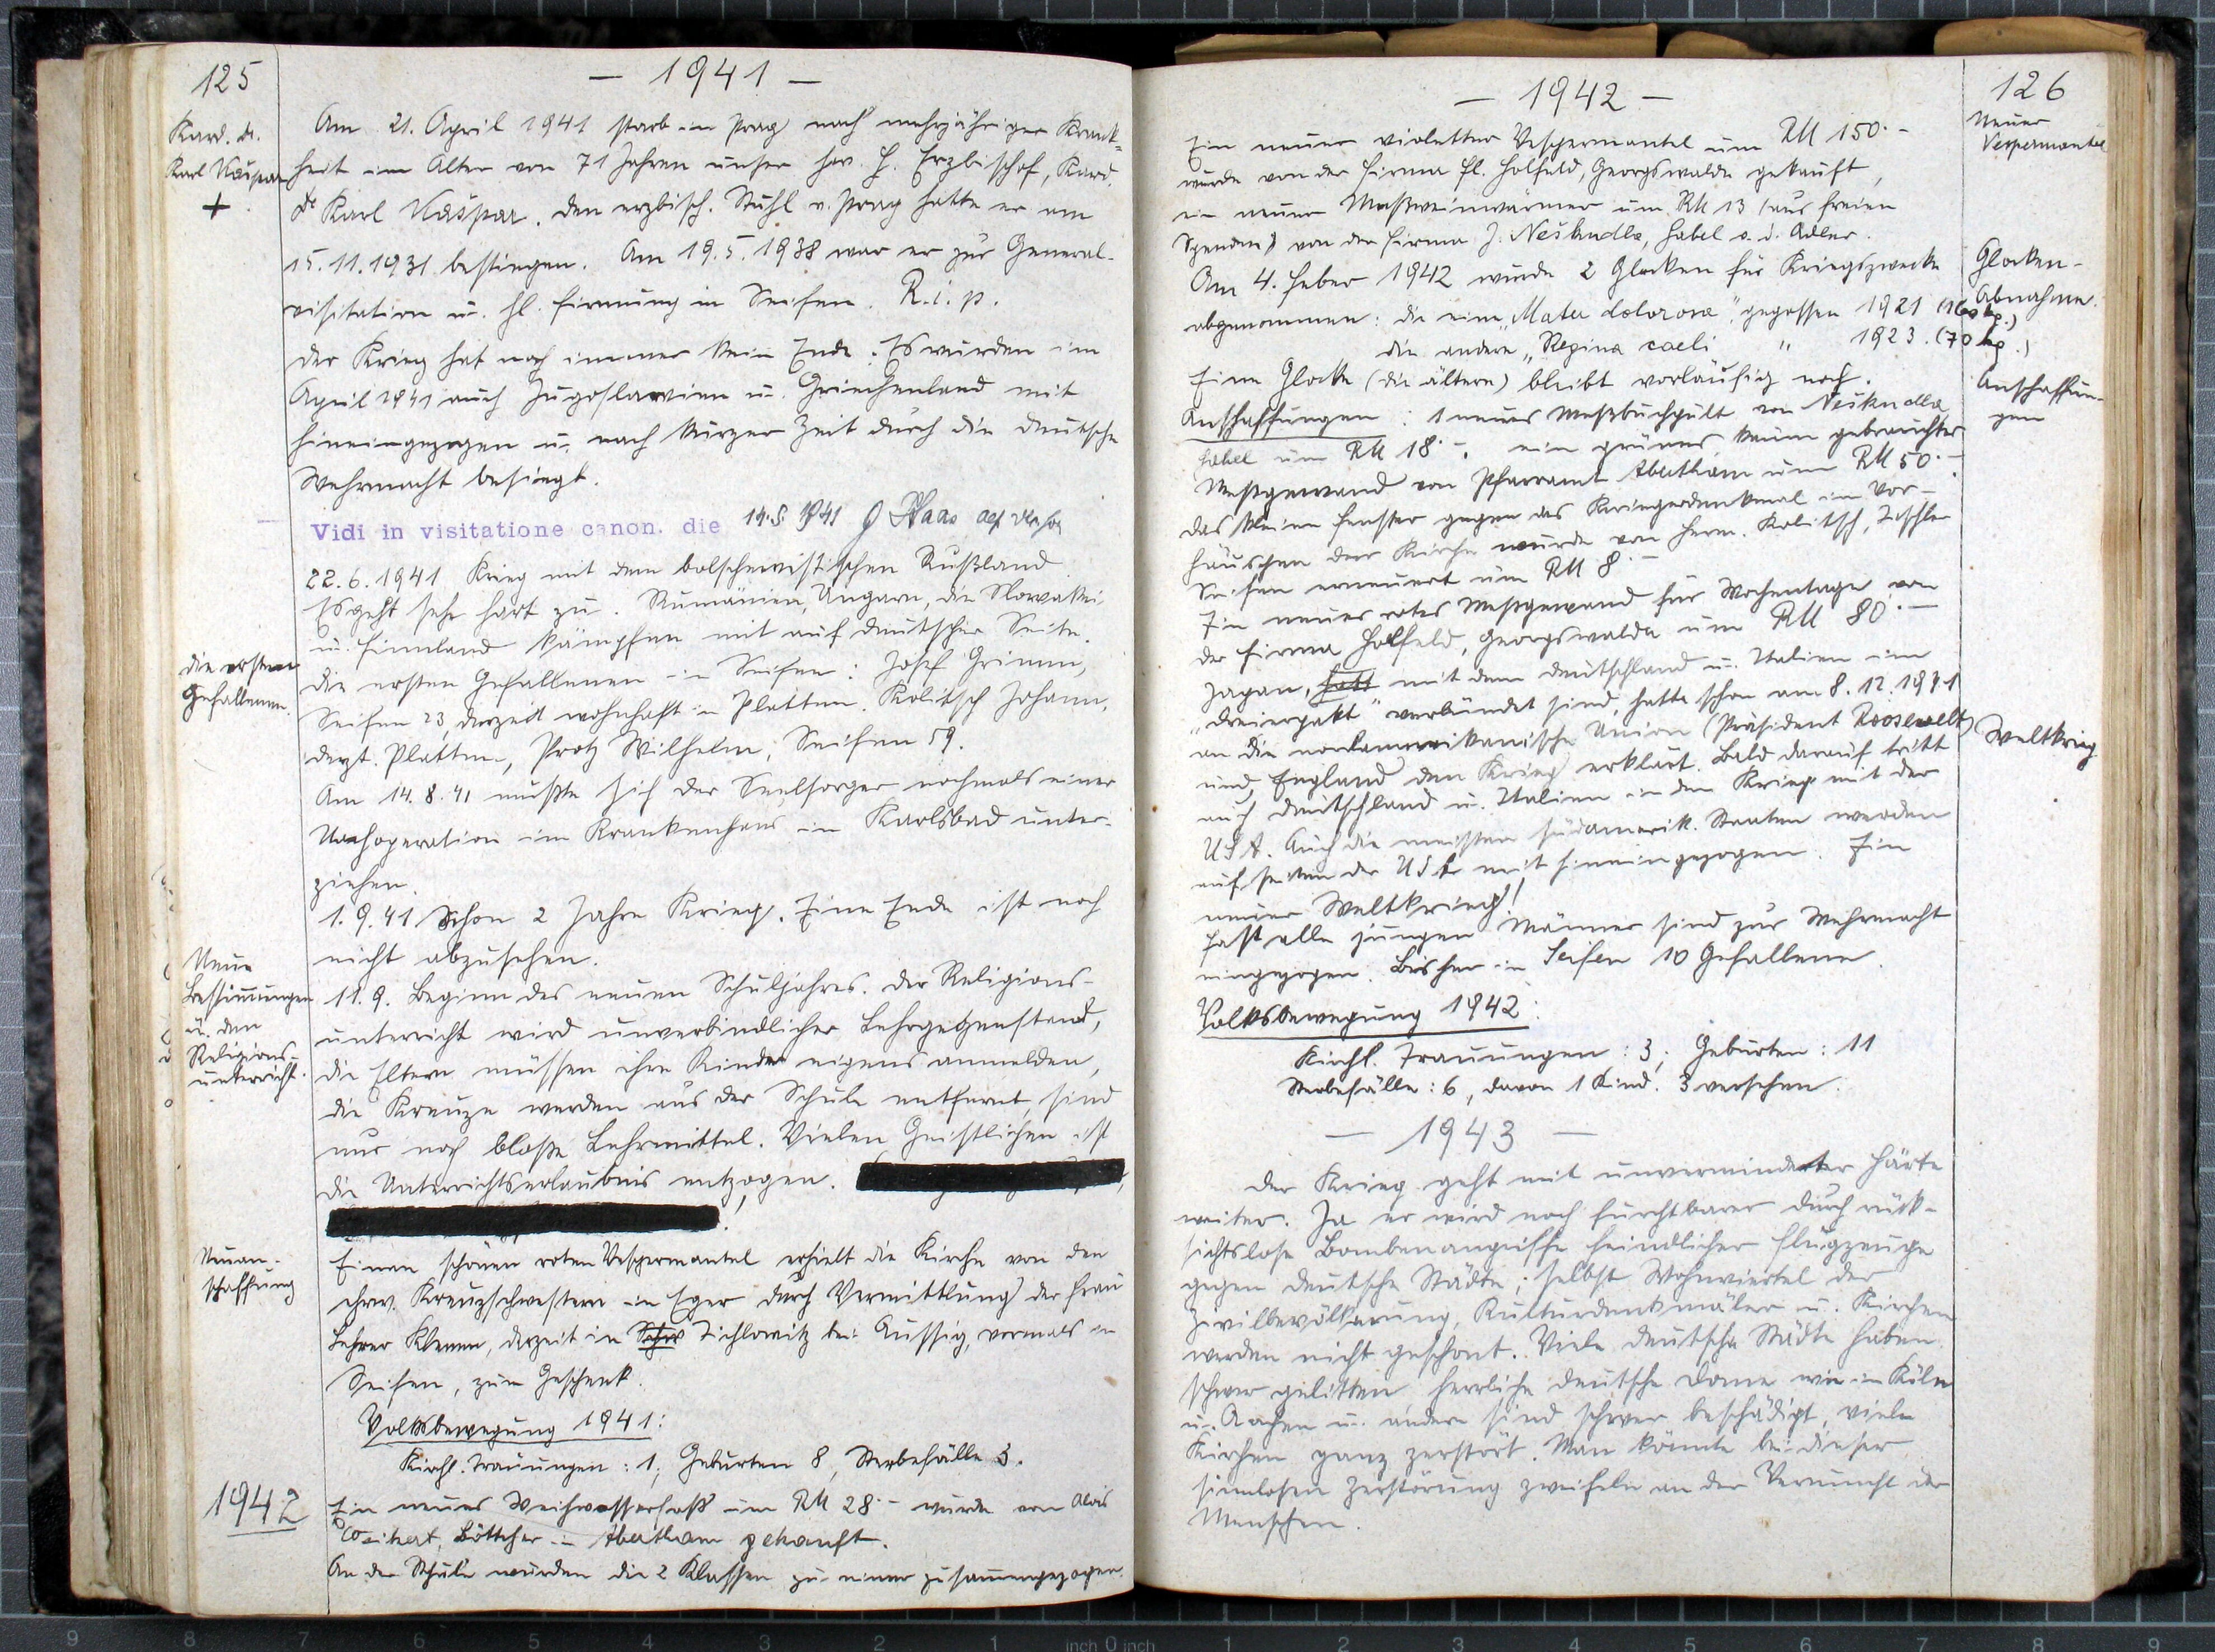 125
— 1941 —
Kard. Dr.
Karl Kašpar
+
Am 21. April 1941 starb in Prag nach mehrjähriger Krank-
heit im Alter von 71 Jahren unser hw. H. Erzbischof, Kard.
Dr Karl Kašpar. Den erzbisch. Stuhl v. Prag hatte er am
15.11.1931 bestiegen. Am 19.5.1938 war er zur General-
visitation u. hl. Firmung in Seifen. R.i.p.
Der Krieg hat noch immer kein Ende. Es wurden im
April 1941 auch Jugoslawien u. Griechenland mit
hineingezogen u. nach kurzer Zeit durch die deutsche
Wehrmacht besiegt.
Vidi in visitatione canon. die 14.5.1941
22.6.1941 Krieg mit dem bolschewistischen Rußland.
Es geht sehr hart zu. Rumänien, Ungarn, die Slowakei
u. Finnland kämpfen mit auf deutscher Seite.
Die ersten
Gefallenen.
Die ersten Gefallenen in Seifen: Josef Grimm,
Seifen 23, derzeit wohnhaft in Platten. Kolitsch Johann,
derzt. Platten, Protz Wilhelm, Seifen 59.
Am 14.8.41 mußte sich der Seelsorger nochmals einer
Nachoperation im Krankenhaus in Karlsbad unter-
ziehen.
1.9.41 Schon 2 Jahre Krieg. Eine Ende ist noch
nicht abzusehen.
Neue
Bestimmungen
ü. den
Religions-
unterricht.
11.9. Beginn des neuen Schuljahres. Der Religions-
unterricht wird unverbindlicher Lehrgegenstand,
die Eltern müssen ihre Kinder eigens anmelden,
die Kreuze werden aus der Schule entfernt, sind
nur noch bloße Lehrmittel. Vielen Geistlichen ist
die Unterrichtserlaubnis entzogen.
Neuan-
schaffung
Einen schönen roten Vespermantel erhielt die Kirche von den
ehrw. Kreuzschwestern in Eger durch Vermittlung der Frau
Lehrer Klemm, derzeit in Schw Tichlowitz bei Aussig, vormals in
Seifen, zum Geschenk.
Volksbewegung 1941:
Kirchl. Trauungen: 1; Geburten 8, Sterbefälle 3.
1942
Ein neues Weihwasserfaß um RM 28.– wurde von Alois
Böttcher in Abertham gekauft.
An der Schule wurden die 2 Klassen zu einer zusammengezogen.
126
— 1942 —
Neuer
Vespermantel
Ein neuer violetter Vespermantel um RM 150.–
wurde von der Firma Fl. Holfeld, Georgswalde gekauft,
ein neuer Meßweinwärmer um RM 13 (aus freien
Spenden) von der Firma J. Neškudla, Gabel a. d. Adler.
Glocken-
Abnahme.
Am 4. Feber 1942 wurde 2 Glocken für Kriegszwecke
abgenommen: die eine „Mater dolorosa“, gegossen 1921 (160 kg.)
die andere „Regina caeli " 1923. (70 kg.)
Eine Glocke (die ältere) bleibt vorläufig noch.
Anschaffun-
gen
Anschaffungen: 1 neues Meßbuchpult von Neškudla
Gabel um RM 18.–, ein grünes kaum gebrauchtes
Meßgewand von Pfarramt Abertham um RM 50.–
Das kleine Fenster gegen das Kriegerdenkmal im Vor-
häuschen der Kirche wurde von Herm. Kolitsch, Tischler
Seifen erneuert um RM 8.–
Ein neues rotes Meßgewand für Wochentage von
der Firma Holfeld, Georgswalde um RM 80.–
Japan, hatt mit dem Deutschland u. Italien im
„Dreierpakt“ verbündet sind, hatte schon am 8.12.1941
an die nordamerikanische Union (Präsident Roosewelt)
Weltkrieg
und England den Krieg erklärt. Bald darauf tritt
auch Deutschland u. Italien in den Krieg mit der
USA. Auch die meisten südamerik. Staaten werden
auf seiten der USA mit hineingezogen. Ein
neuer Weltkrieg!
Fast alle jungen Männer sind zur Wehrmacht
eingezogen. Bisher in Seifen 10 Gefallene.
Volksbewegung 1942:
Kirchl. Trauungen: 3; Geburten: 11
Sterbefälle: 6, davon 1 Kind. 3 versehen.
— 1943 —
Der Krieg geht mit unverminderter Härte
weiter. Ja er wird noch furchtbarer durch rück-
sichtslose Bombenangriffe feindlicher Flugzeuge
gegen deutsche Städte; selbst Wohnviertel der
Zivilbevölkerung, Kulturdenkmäler u. Kirchen
werden nicht geschont. Viele deutsche Städte haben
schwer gelitten. Herrliche deutsche Dome wie in Köln
u. Aachen u. andere sind schwer beschädigt, viele
Kirchen ganz zerstört. Man könnte bei dieser
sinnlosen Zerstörung zweifeln an der Vernunft der
Menschen.
9 8 7 6 5 4 3 2 1 inch 0 inch 1 2 3 4 5 6 7 8 9